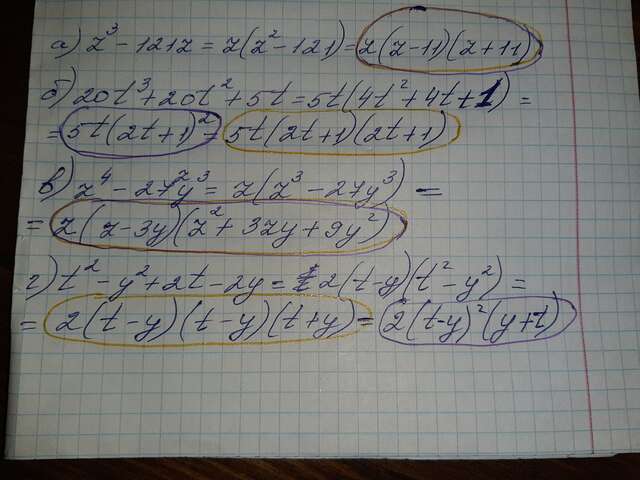 а) z³ - 121z = z(z² - 121) = z(z-11)(z+11)
б) 20t³ + 20t² + 5t = 5t(4t² + 4t + 1) =
= 5t(2t+1)² = 5t(2t+1)(2t+1)
в) z⁴ - 27zy³ = z(z³ - 27y³) =
= z(z-3y)(z² + 3zy + 9y²)
г) t² - y² + 2t - 2y = 2(t-y)(t² - y²) =
= 2(t-y)(t-y)(t+y) = 2(t-y)²(y+t)